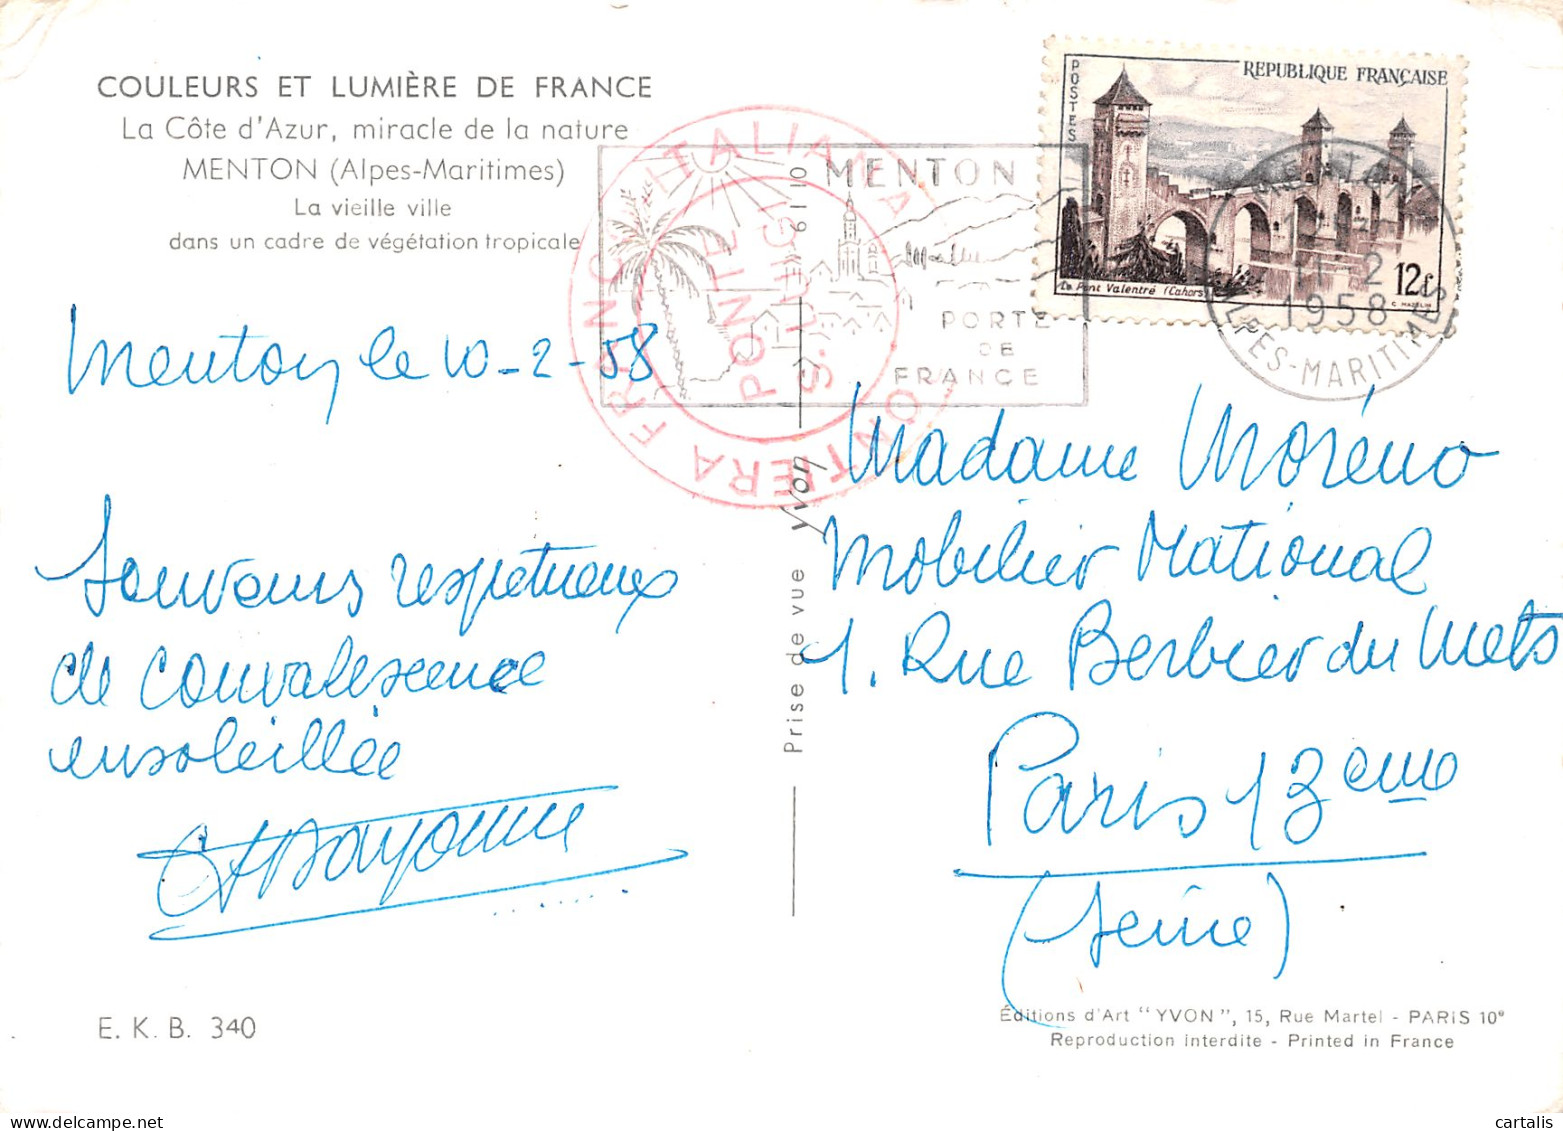 COULEURS ET LUMIÈRE DE FRANCE
La Côte d'Azur, miracle de la nature
MENTON (Alpes-Maritimes)
La vieille ville
dans un cadre de végétation tropicale
Menton le 10-2-58
Souvenirs respectueux
de convalescence
ensoleillée
E. K. B. 340
FRONTIERA FRANCO ITALIANA
PONTE
S. LUIGI
MENTON
PORTE
DE
FRANCE
Prise de vue Yvon 6110
POSTES
REPUBLIQUE FRANÇAISE
Le Pont Valentré (Cahors)
12f
MENTON
11-2
1958
ALPES-MARITIMES
Madame Moréno
Mobilier National
1. Rue Berbier du Mets
Paris 13eme
(Seine)
Éditions d'Art "YVON", 15, Rue Martel - PARIS 10e
Reproduction interdite - Printed in France
cartalis